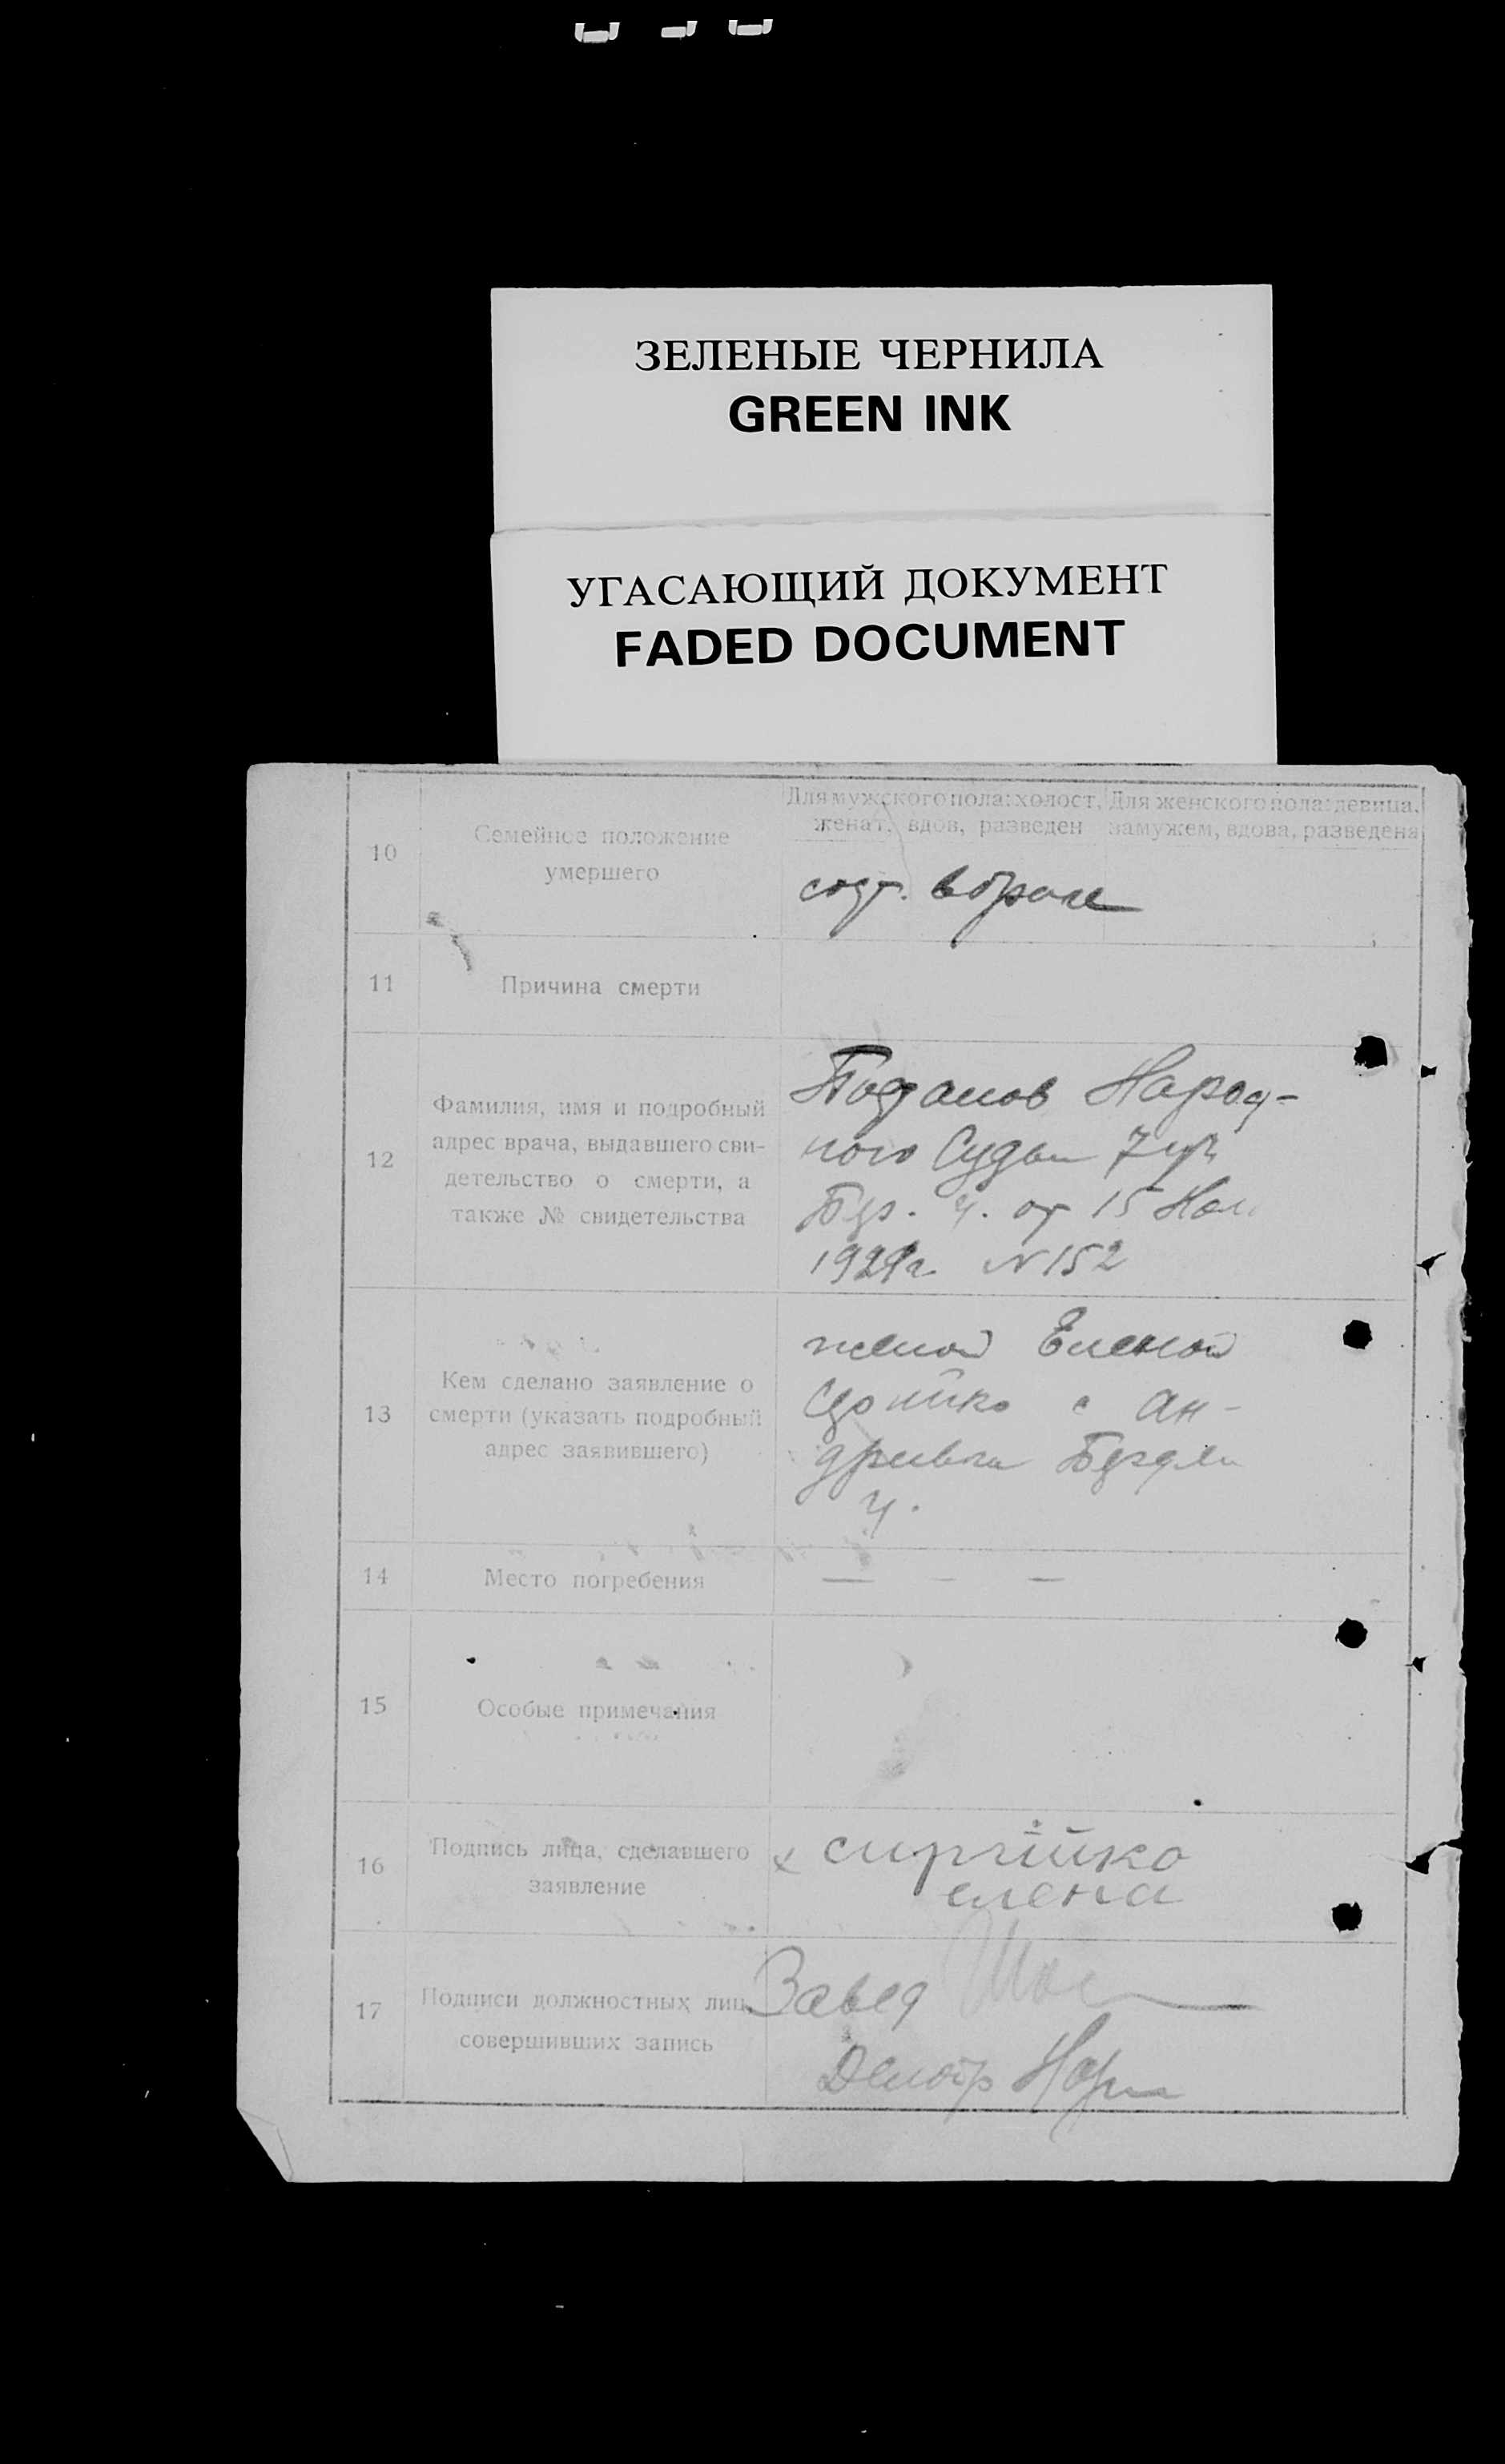 ЗЕЛЕНЫЕ ЧЕРНИЛА
GREEN INK
УГАСАЮЩИЙ ДОКУМЕНТ
FADED DOCUMENT
10
Семейное положение
умершего
Для мужского пола: холост,
женат, вдов, разведен
Для женского пола: девица,
замужем, вдова, разведена
сост. в браке
11
Причина смерти
12
Фамилия, имя и подробный
адрес врача, выдавшего сви-
детельство о смерти, а
также № свидетельства
Народ-
ного Суда 7 уч
от 15
г. N 152
13
Кем сделано заявление о
смерти (указать подробный
адрес заявившего)
женой Еленой
с Ан-
14
Место погребения
— – —
15
Особые примечания
16
Подпись лица, сделавшего
заявление
х
елена
17
Подписи должностных лиц,
совершивших запись
Завед